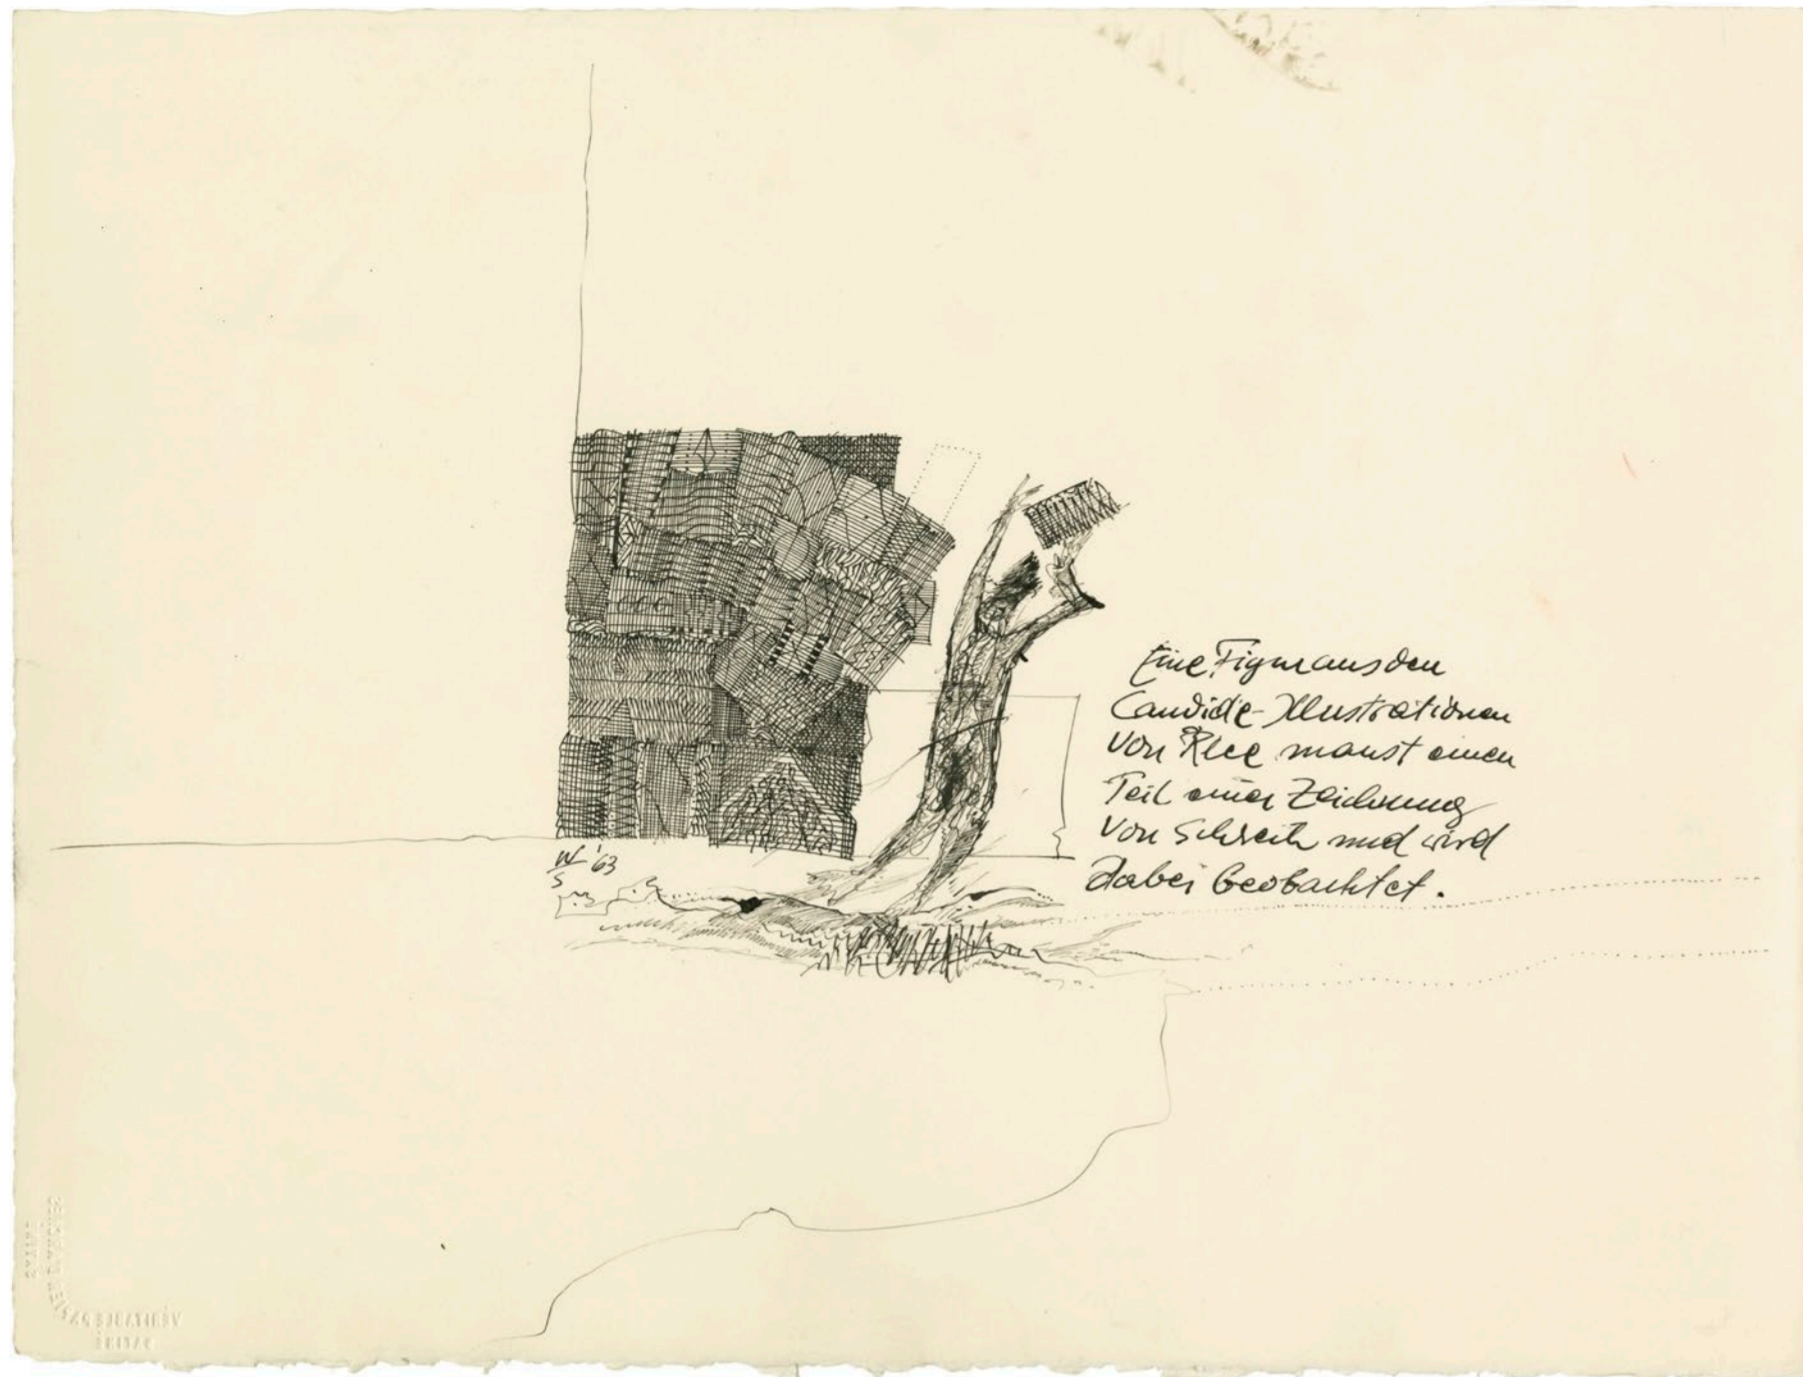 Eine Figur aus den
Candide-Illustrationen
von Klee maust einen
Teil einer Zeichnung
von Schreib und wird
dabei beobachtet.
W '63
S